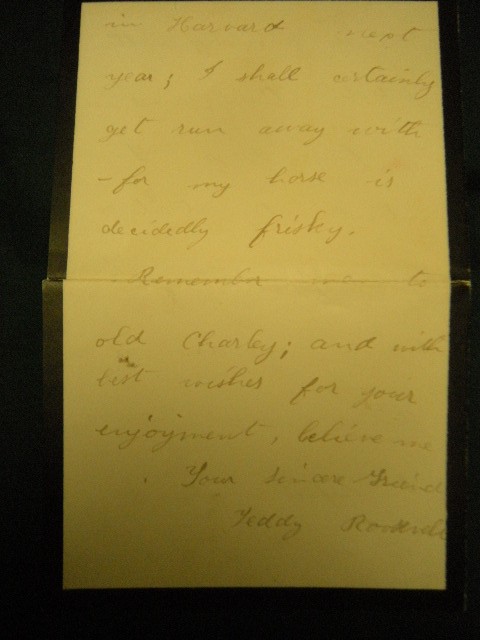 in Harvard next
year; I shall certainly
get run away with
- for my horse is
decidedly frisky.
Remember me to
old Charley; and with
best wishes for your
enjoyment, believe me
Your sincere Friend
Teddy Roosevelt